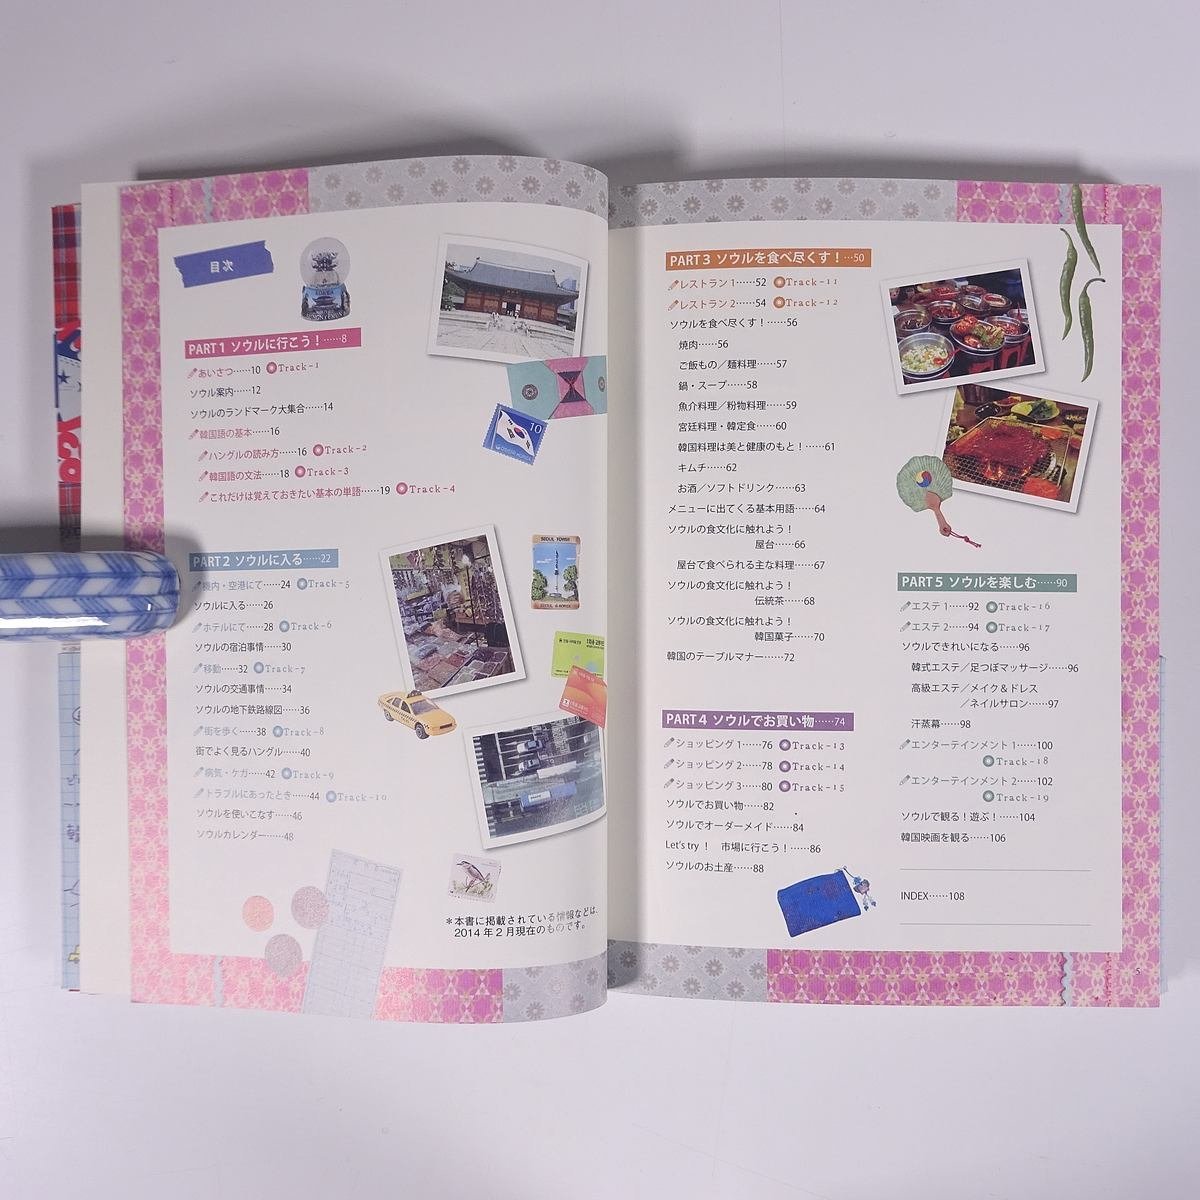 目次
PART1 ソウルに行こう！……8
あいさつ……10 Track-1
ソウル案内……12
ソウルのランドマーク大集合……14
韓国語の基本……16
ハングルの読み方……16 Track-2
韓国語の文法……18 Track-3
これだけは覚えておきたい基本の単語……19 Track-4
10
PART2 ソウルに入る……22
機内・空港にて……24 Track-5
ソウルに入る……26
ホテルにて……28 Track-6
ソウルの宿泊事情……30
移動……32 Track-7
ソウルの交通事情……34
ソウルの地下鉄路線図……36
街を歩く……38 Track-8
街でよく見るハングル……40
病気・ケガ……42 Track-9
トラブルにあったとき……44 Track-10
ソウルを使いこなす……46
ソウルカレンダー……48
SEOUL TOWER
＊本書に掲載されている情報などは、
2014年2月現在のものです。
PART3 ソウルを食べ尽くす！…50
レストラン1……52 Track-11
レストラン2……54 Track-12
ソウルを食べ尽くす！……56
焼肉……56
ご飯もの／麺料理……57
鍋・スープ……58
魚介料理／粉物料理……59
宮廷料理・韓定食……60
韓国料理は美と健康のもと！……61
キムチ……62
お酒／ソフトドリンク……63
メニューに出てくる基本用語……64
ソウルの食文化に触れよう！
屋台……66
屋台で食べられる主な料理……67
ソウルの食文化に触れよう！
伝統茶……68
ソウルの食文化に触れよう！
韓国菓子……70
韓国のテーブルマナー……72
PART4 ソウルでお買い物……74
ショッピング1……76 Track-13
ショッピング2……78 Track-14
ショッピング3……80 Track-15
ソウルでお買い物……82
ソウルでオーダーメイド……84
Let's try！ 市場に行こう！……86
ソウルのお土産……88
PART5 ソウルを楽しむ……90
エステ1……92 Track-16
エステ2……94 Track-17
ソウルできれいになる……96
韓式エステ／足つぼマッサージ……96
高級エステ／メイク＆ドレス
／ネイルサロン……97
汗蒸幕……98
エンターテインメント1……100
Track-18
エンターテインメント2……102
Track-19
ソウルで観る！遊ぶ！……104
韓国映画を観る……106
INDEX……108
5